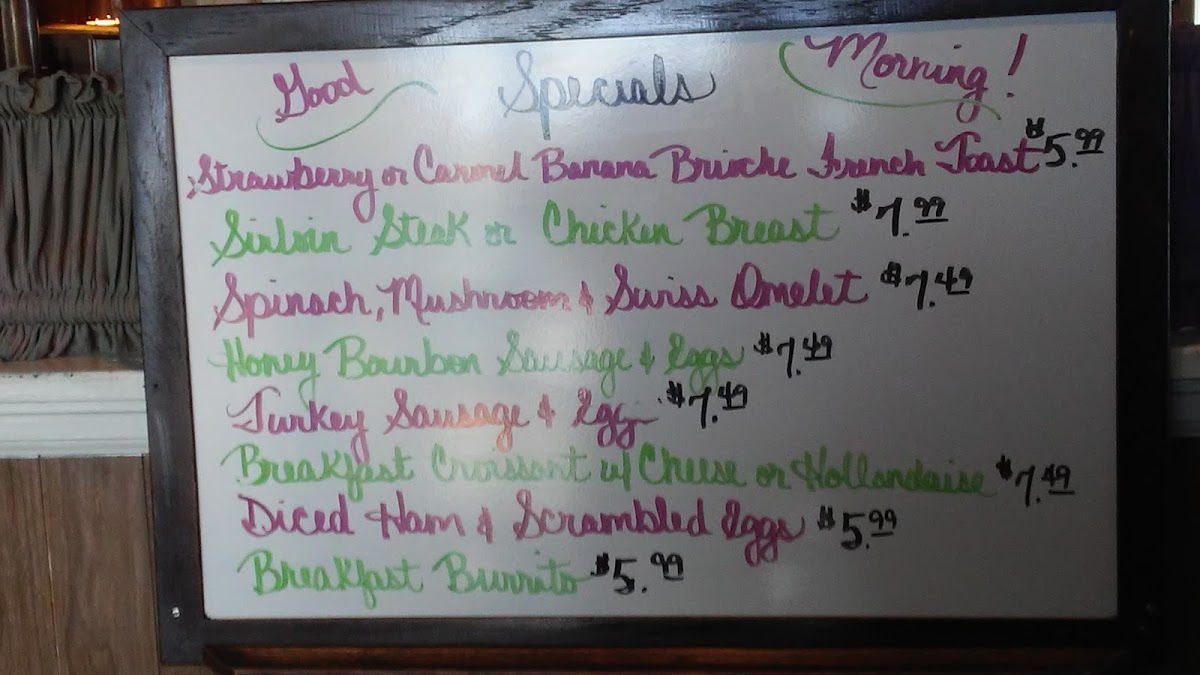 Good Specials Morning!
Strawberry or Carmel Banana Brioche French Toast $5.99
Sirloin Steak or Chicken Breast $7.99
Spinach, Mushroom & Swiss Omelet $7.49
Honey Bourbon Sausage & Eggs $7.49
Turkey Sausage & Egg $7.49
Breakfast Croissant w/ Cheese or Hollandaise $7.49
Diced Ham & Scrambled Eggs $5.99
Breakfast Burrito $5.99